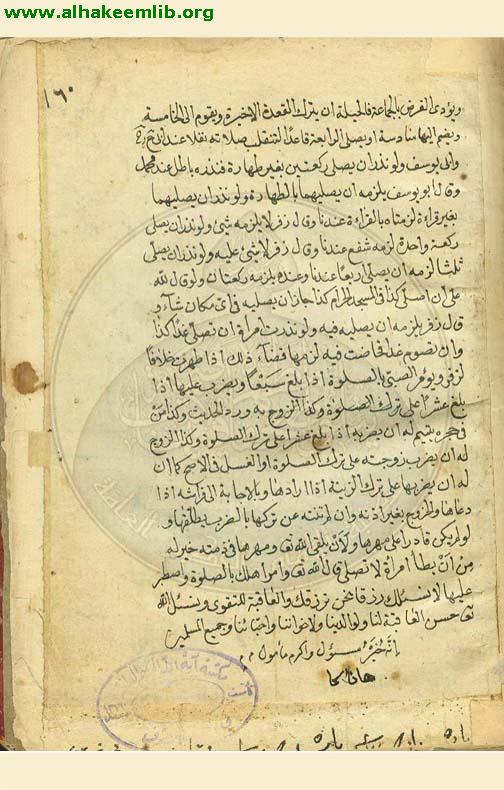 www.alhakeemlib.org
١٦٠
ويؤدى الفرض بالجماعة فالحيلة ان يترك القعدة الاخيرة ويقوم الى الخامسة
ويضم اليها سادسة او يصلى الرابعة قاعدا لتنقلب صلاته نفلا عند ابى ح
وابى يوسف ولو نذر ان يصلى ركعتين بغير طهارة فنذره باطل عند محمد
وقال ابو يوسف يلزمه ان يصليهما بالطهارة ولو نذر ان يصليهما
بغير قراءة لزمتاه بالقراءة عندنا وقال زفر لا يلزمه شئ ولو نذر ان يصلى
ركعة واحدة لزمه شفع عندنا وقال زفر لا شئ عليه ولو نذر ان يصلى
ثلثا لزمه ان يصلى اربعا عندنا وعنده يلزمه ركعتان ولو قال لله
على ان اصلى كذا فى المسجد الحرام كذا جاز ان يصليه فى اى مكان شاء و
قال زفر يلزمه ان يصليه فيه ولو نذرت امراة ان تصلى غدا كذا
وان تصوم غدا فحاضت فيه لزمها قضاء ذلك اذا طهرت خلافا
لزفر ويؤمر الصبى بالصلوة اذا بلغ سبعا ويضرب عليها اذا
بلغ عشرا على ترك الصلوة وكذا الزوج به ورد الحديث وكذا من
فى حجره يتيم له ان يضربه اذا بلغ عشرا على ترك الصلوة وكذا الزوج
له ان يضرب زوجته على ترك الصلوة او الغسل فى الاصح كما ان
له ان يضربها على ترك الزينة اذا ارادها والاجابة الى فراشه اذا
دعاها والخروج بغير اذنه وان لم تنته عن تركها بالضرب يطلقها و
لو لم يكن قادرا على مهرها ولأن يلقى الله تعالى ومهرها فى ذمته خير له
من أن يطأ امرأة لا تصلى قال الله تعالى وامر اهلك بالصلوة واصطبر
عليها لا نسئلك رزقا نحن نرزقك والعاقبة للتقوى ونسئل الله
تعالى حسن العاقبة لنا ولوالدينا ولاخواننا واحبائنا وجميع المسلمين
انه خير مسؤل واكرم مأمول